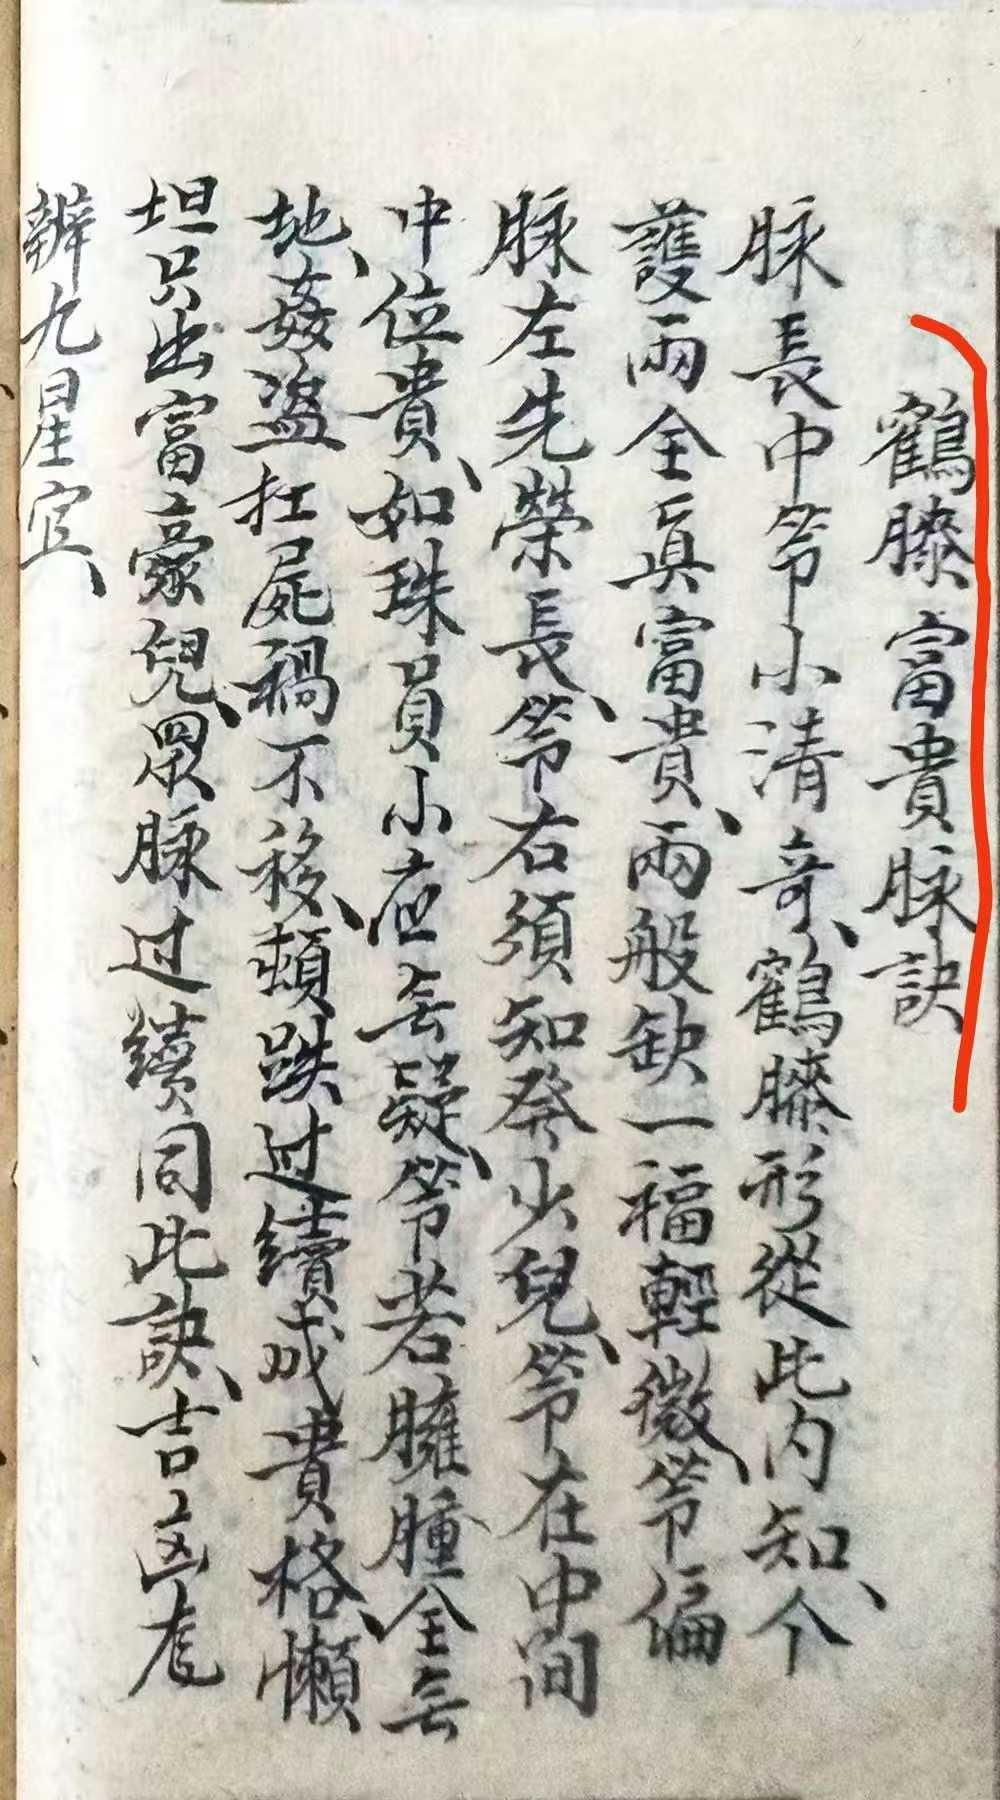 鶴膝富貴脉訣
脉長中笒小清竒、鶴膝形從此内知、今
護兩全眞富貴、兩般缺一福輕微、笒偏
脉左先榮長、笒右須知發少兒、笒在中间
中位貴、如珠員小应无疑、笒若臃腫全无
地、姦盗扛屍禍不移、頓跌过續成貴格、懶
坦只出富豪兒、眾脉过續同此訣、吉凶
辦九星宜、